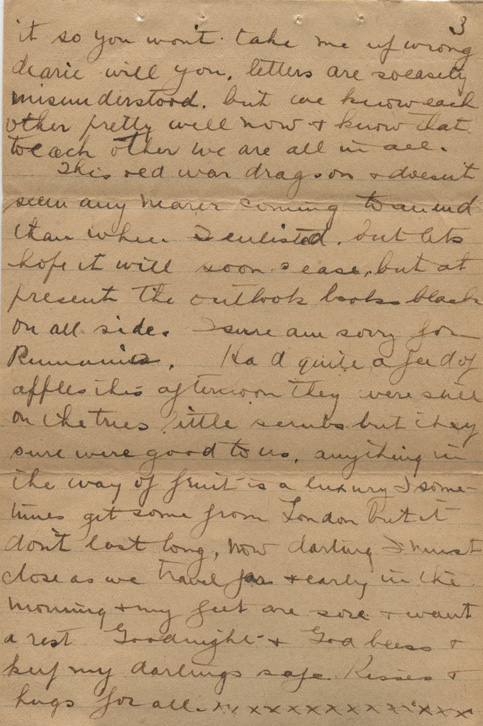 3
it so you won't take me up wrong
dearie will you, letters are so easily
misunderstood. but we know each
other pretty well now + know that
to each other we are all in all.
This old war drags on + doesn't
seem any nearer coming to an end
than when I enlisted. but lets
hope it will soon cease, but at
present the outlook looks black
on all sides I sure am sorry for
Rumania. Had quite a feed of
apples this afternoon they were still
on the trees little scrubs but they
sure were good to us, anything in
the way of fruit is a luxury I some-
times get some from London but it
don't last long, now darling I must
close as we travel far + early in the
morning + my feet are sore + want
a rest Goodnight + God bless +
keep my darlings safe Kisses +
hugs for all. x x x x x x x x x x x x